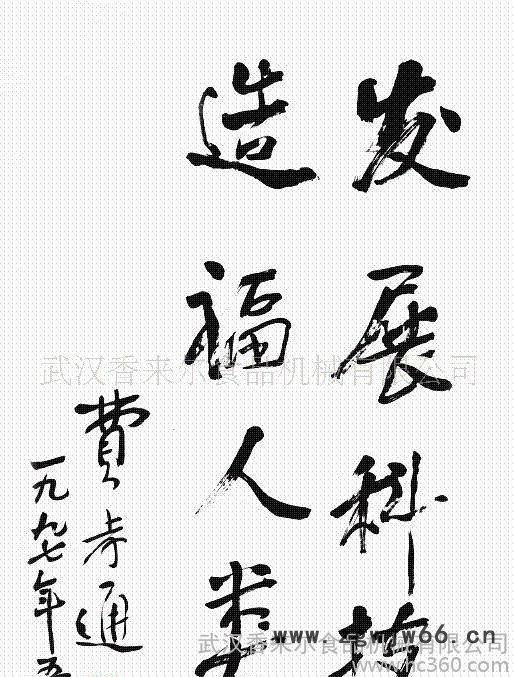 发展科技
造福人类
费孝通
一九九七年五
武汉香来尔食品机械有限公司
武汉香来尔食品机械有限公司
www.hc360.com